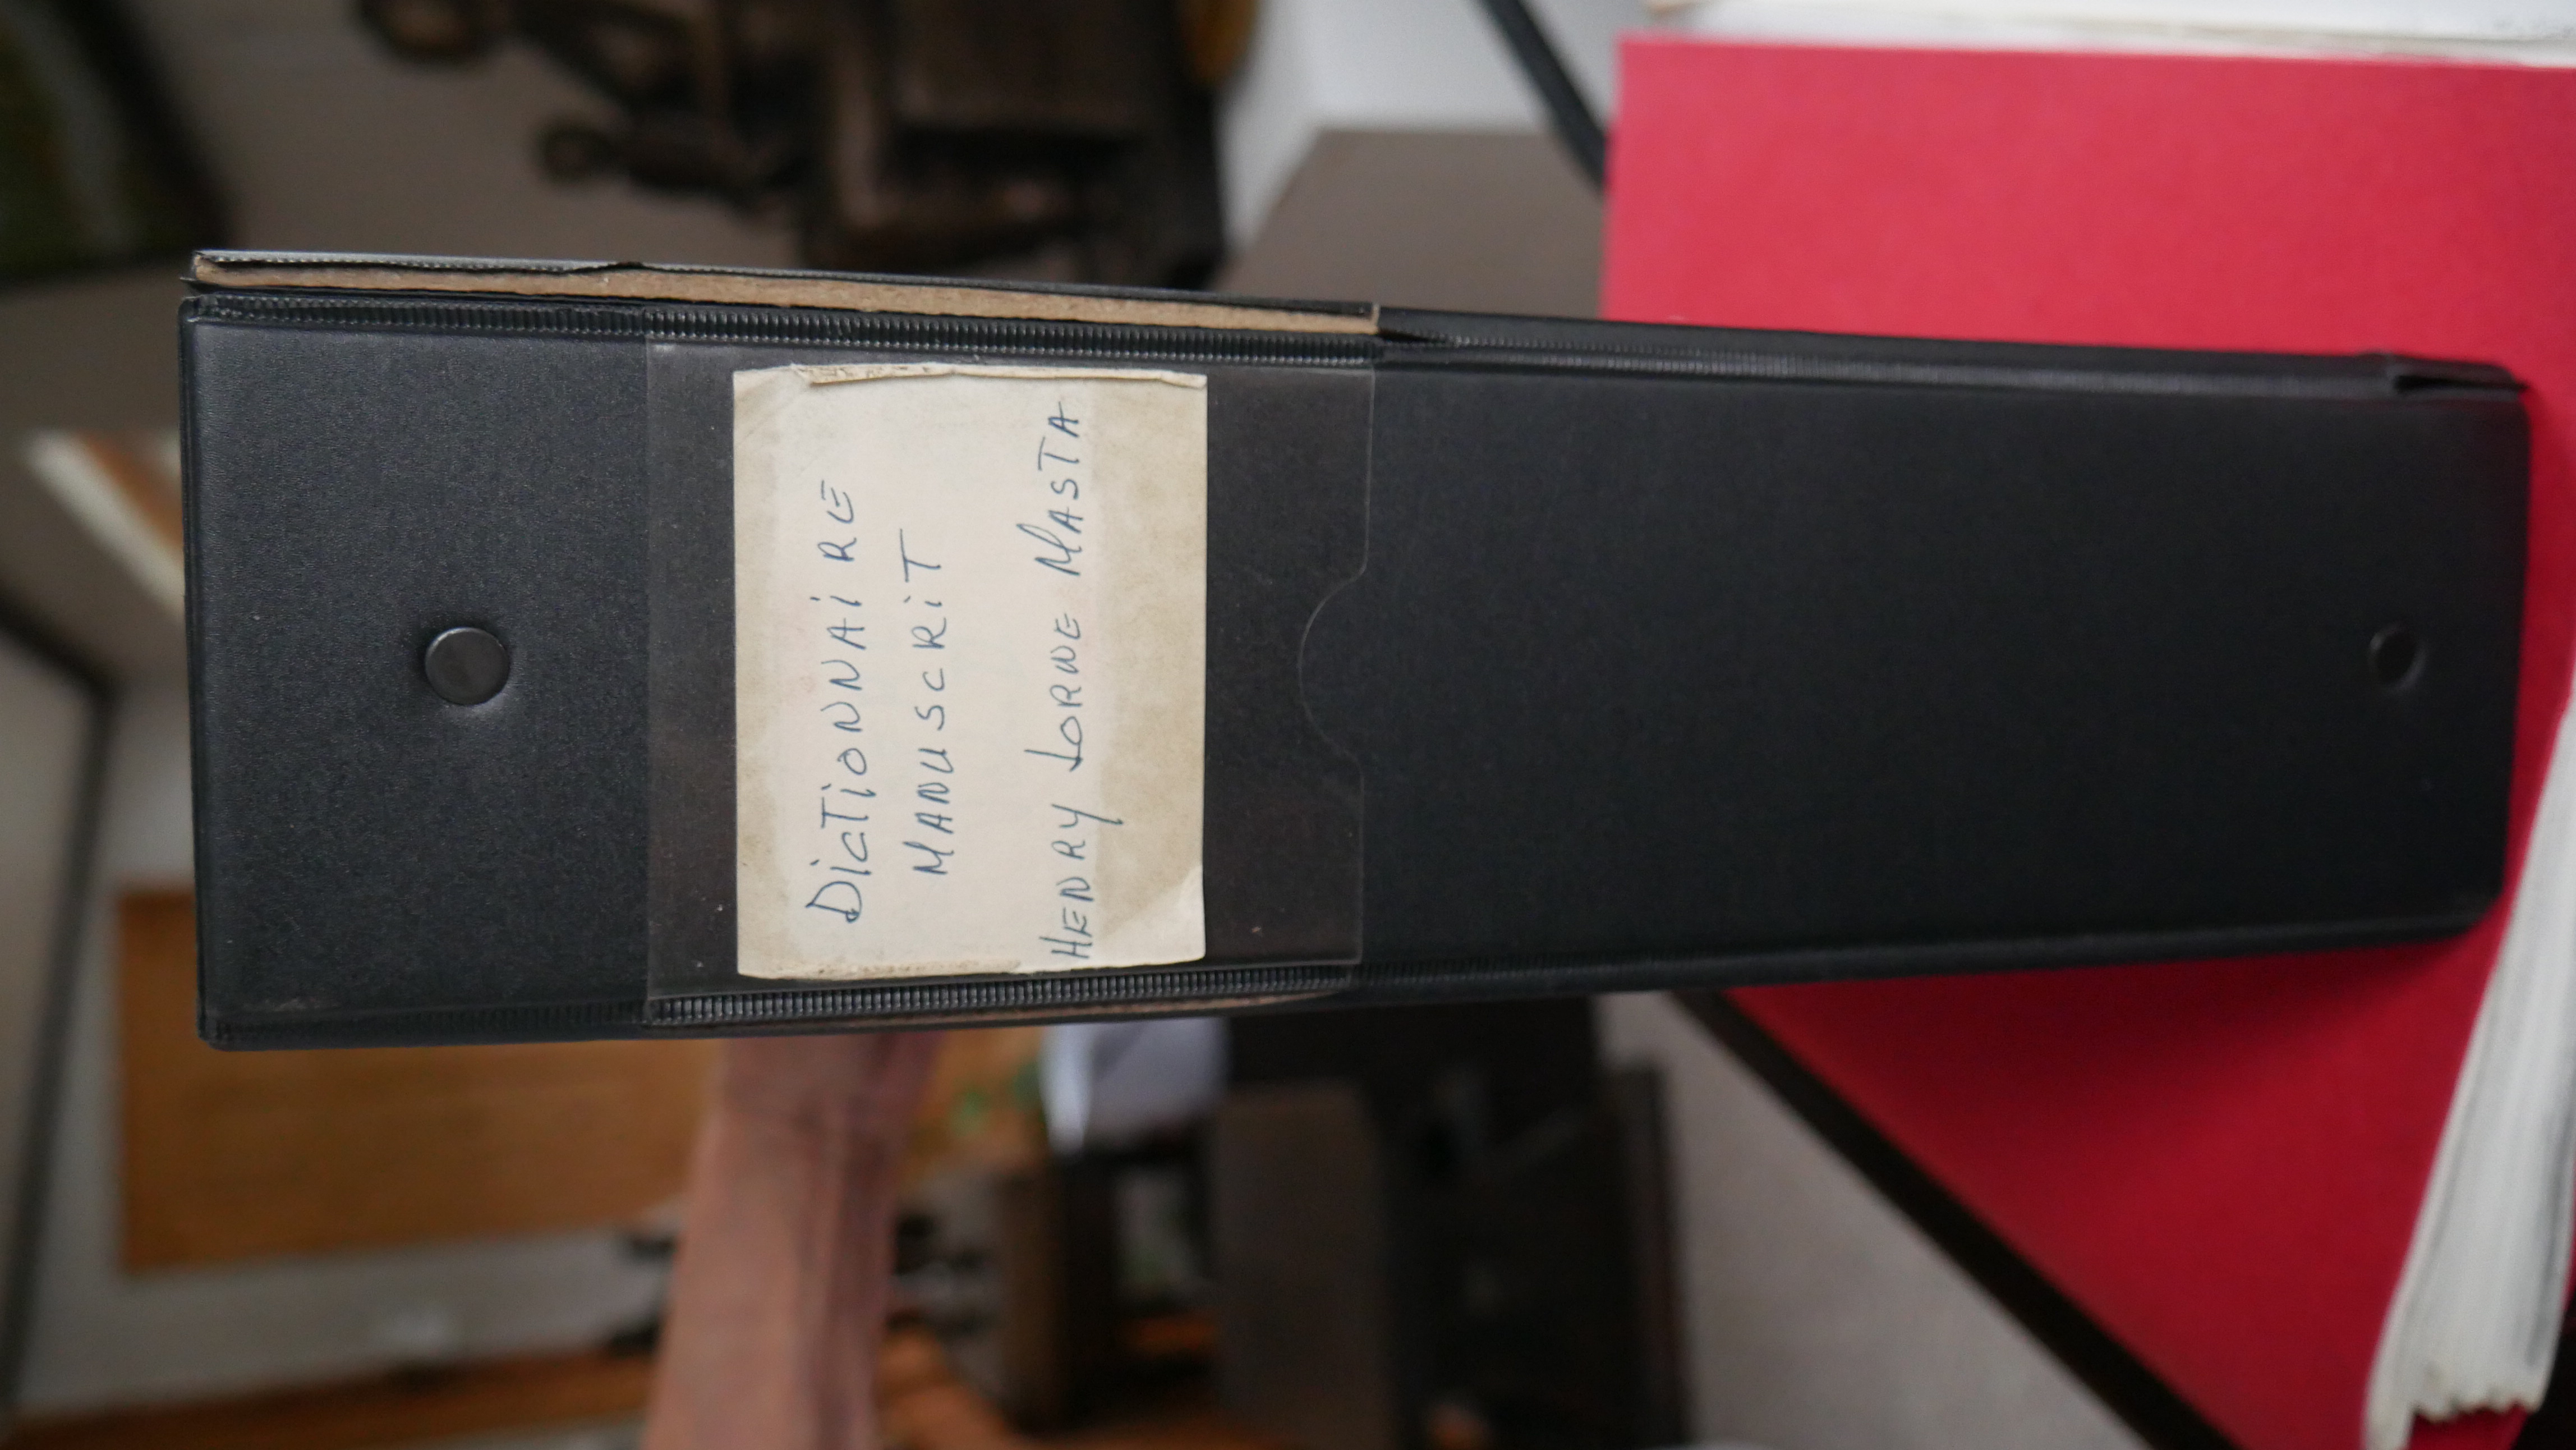 DictioNNAiRE
MANUSCRiT
HENRY LORNE MASTA